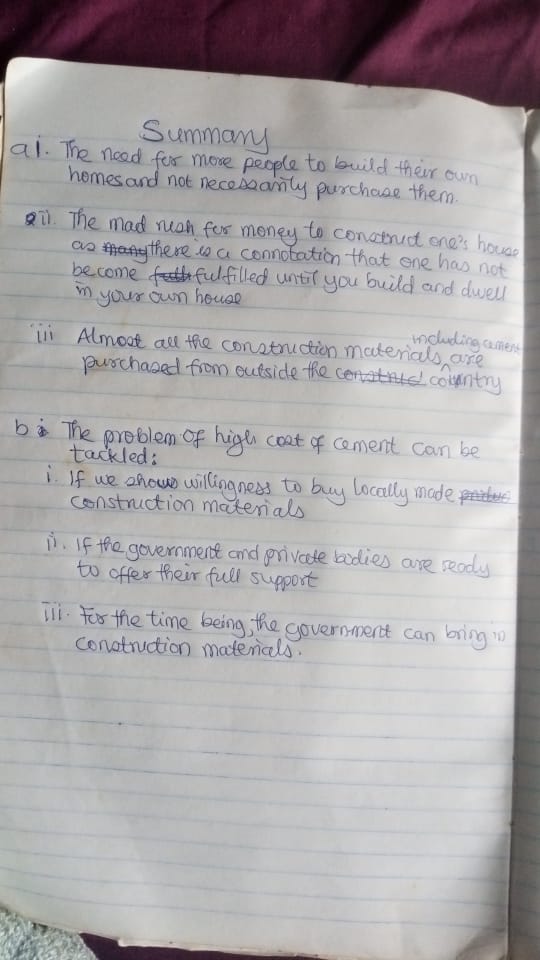 Summary
a i. The need for more people to build their own
homes and not necessarily purchase them.
ii. The mad rush for money to construct one's house
as many there is a connotation that one has not
become fulfilled until you build and dwell
in your own house
iii Almost all the construction materials, including cement are
purchased from outside the construc country
b i The problem of high cost of cement can be
tackled:
i. If we show willingness to buy locally made
construction materials
ii. If the government and private bodies are ready
to offer their full support
iii. For the time being, the government can bring in
construction materials.